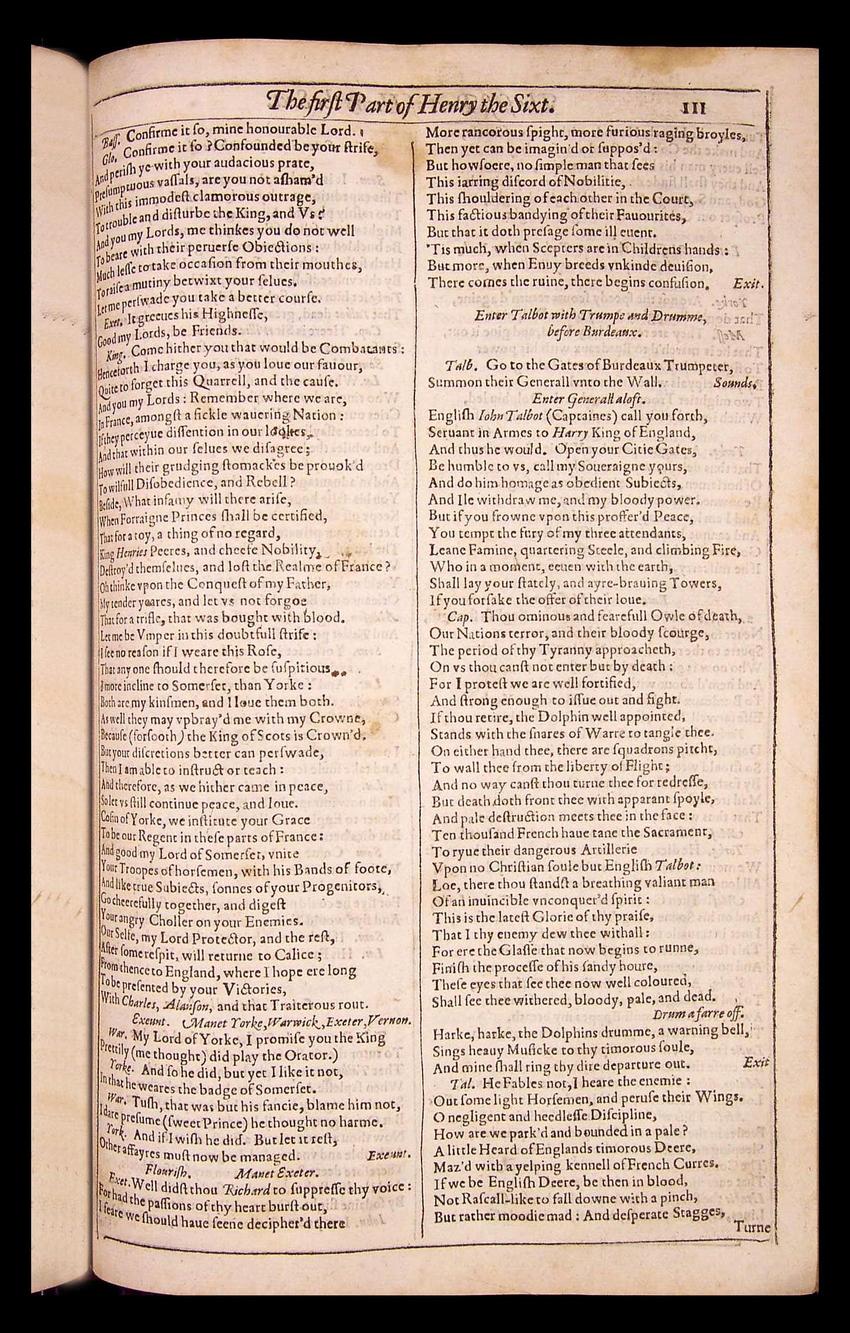 The firſt Part of Henry the Sixt. 111
Baſſ. Confirme it ſo, mine honourable Lord.
Glo. Confirme it ſo? Confounded be your ſtrife,
And periſh ye with your audacious prate,
Preſumptuous vaſſals, are you not aſham'd
With this immodeſt clamorous outrage,
To trouble and diſturbe the King, and Vs?
And you my Lords, me thinkes you do not well
To beare with their peruerſe Obiections:
Much leſſe to take occaſion from their mouthes,
To raiſe a mutiny betwixt your ſelues.
Let me perſwade you take a better courſe.
Exet. It greeues his Highneſſe,
Good my Lords, be Friends.
King. Come hither you that would be Combatants:
Henceforth I charge you, as you loue our fauour,
Quite to forget this Quarrell, and the cauſe.
And you my Lords: Remember where we are,
In France, amongſt a fickle wauering Nation:
If they perceyue diſſention in our lookes,
And that within our ſelues we diſagree;
How will their grudging ſtomackes be prouok'd
To wilfull Diſobedience, and Rebell?
Beſide, What infamy will there ariſe,
When Forraigne Princes ſhall be certified,
That for a toy, a thing of no regard,
King Henries Peeres, and cheefe Nobility,
Deſtroy'd themſelues, and loſt the Realme of France?
Oh thinke vpon the Conqueſt of my Father,
My tender yeares, and let vs not forgoe
That for a trifle, that was bought with blood.
Let me be Vmper in this doubtfull ſtrife:
I ſee no reaſon if I weare this Roſe,
That any one ſhould therefore be ſuſpitious
I more incline to Somerſet, than Yorke:
Both are my kinſmen, and I loue them both.
As well they may vpbray'd me with my Crowne,
Becauſe (forſooth) the King of Scots is Crown'd.
But your diſcretions better can perſwade,
Then I am able to inſtruct or teach:
And therefore, as we hither came in peace,
So let vs ſtill continue peace, and loue.
Coſin of Yorke, we inſtitute your Grace
To be our Regent in theſe parts of France:
And good my Lord of Somerſet, vnite
Your Troopes of horſemen, with his Bands of foote,
And like true Subiects, ſonnes of your Progenitors,
Go cheerefully together, and digeſt
Your angry Choller on your Enemies.
Our Selfe, my Lord Protector, and the reſt,
After ſome reſpit, will returne to Calice;
From thence to England, where I hope ere long
To be preſented by your Victories,
With Charles, Alanſon, and that Traiterous rout.
Exeunt. Manet Yorke, Warwick, Exeter, Vernon.
War. My Lord of Yorke, I promiſe you the King
Prettily (me thought) did play the Orator.)
Yorke. And ſo he did, but yet I like it not,
In that he weares the badge of Somerſet.
War. Tuſh, that was but his fancie, blame him not,
I dare preſume (ſweet Prince) he thought no harme.
York. And if I wiſh he did. But let it reſt,
Other affayres muſt now be managed. Exeunt.
Flouriſh. Manet Exeter.
Exet. Well didſt thou Richard to ſuppreſſe thy voice:
For had the paſſions of thy heart burſt out,
I feare we ſhould haue ſeene decipher'd there
More rancorous ſpight, more furious raging broyles,
Then yet can be imagin'd or ſuppos'd:
But howſoere, no ſimple man that ſees
This iarring diſcord of Nobilitie,
This ſhouldering of each other in the Court,
This factious bandying of their Fauourites,
But that it doth preſage ſome ill euent.
'Tis much, when Scepters are in Childrens hands:
But more, when Enuy breeds vnkinde deuiſion,
There comes the ruine, there begins confuſion. Exit.
Enter Talbot with Trumpe and Drumme,
before Burdeaux.
Talb. Go to the Gates of Burdeaux Trumpeter,
Summon their Generall vnto the Wall. Sounds.
Enter Generall aloft.
Engliſh Iohn Talbot (Captaines) call you forth,
Seruant in Armes to Harry King of England,
And thus he would. Open your Citie Gates,
Be humble to vs, call my Soueraigne yours,
And do him homage as obedient Subiects,
And Ile withdraw me, and my bloody power.
But if you frowne vpon this proffer'd Peace,
You tempt the fury of my three attendants,
Leane Famine, quartering Steele, and climbing Fire,
Who in a moment, eeuen with the earth,
Shall lay your ſtately, and ayre-brauing Towers,
If you forſake the offer of their loue.
Cap. Thou ominous and fearefull Owle of death,
Our Nations terror, and their bloody ſcourge,
The period of thy Tyranny approacheth,
On vs thou canſt not enter but by death:
For I proteſt we are well fortified,
And ſtrong enough to iſſue out and fight.
If thou retire, the Dolphin well appointed,
Stands with the ſnares of Warre to tangle thee.
On either hand thee, there are ſquadrons pitcht,
To wall thee from the liberty of Flight;
And no way canſt thou turne thee for redreſſe,
But death doth front thee with apparant ſpoyle,
And pale deſtruction meets thee in the face:
Ten thouſand French haue tane the Sacrament,
To ryue their dangerous Artillerie
Vpon no Chriſtian ſoule but Engliſh Talbot:
Loe, there thou ſtandſt a breathing valiant man
Of an inuincible vnconquer'd ſpirit:
This is the lateſt Glorie of thy praiſe,
That I thy enemy dew thee withall:
For ere the Glaſſe that now begins to runne,
Finiſh the proceſſe of his ſandy houre,
Theſe eyes that ſee thee now well coloured,
Shall ſee thee withered, bloody, pale, and dead.
Drum a farre off.
Harke, harke, the Dolphins drumme, a warning bell,
Sings heauy Muſicke to thy timorous ſoule,
And mine ſhall ring thy dire departure out. Exit
Tal. He Fables not, I heare the enemie:
Out ſome light Horſemen, and peruſe their Wings.
O negligent and heedleſſe Diſcipline,
How are we park'd and bounded in a pale?
A little Heard of Englands timorous Deere,
Maz'd with a yelping kennell of French Curres.
If we be Engliſh Deere, be then in blood,
Not Raſcall-like to fall downe with a pinch,
But rather moodie mad: And deſperate Stagges,
Turne